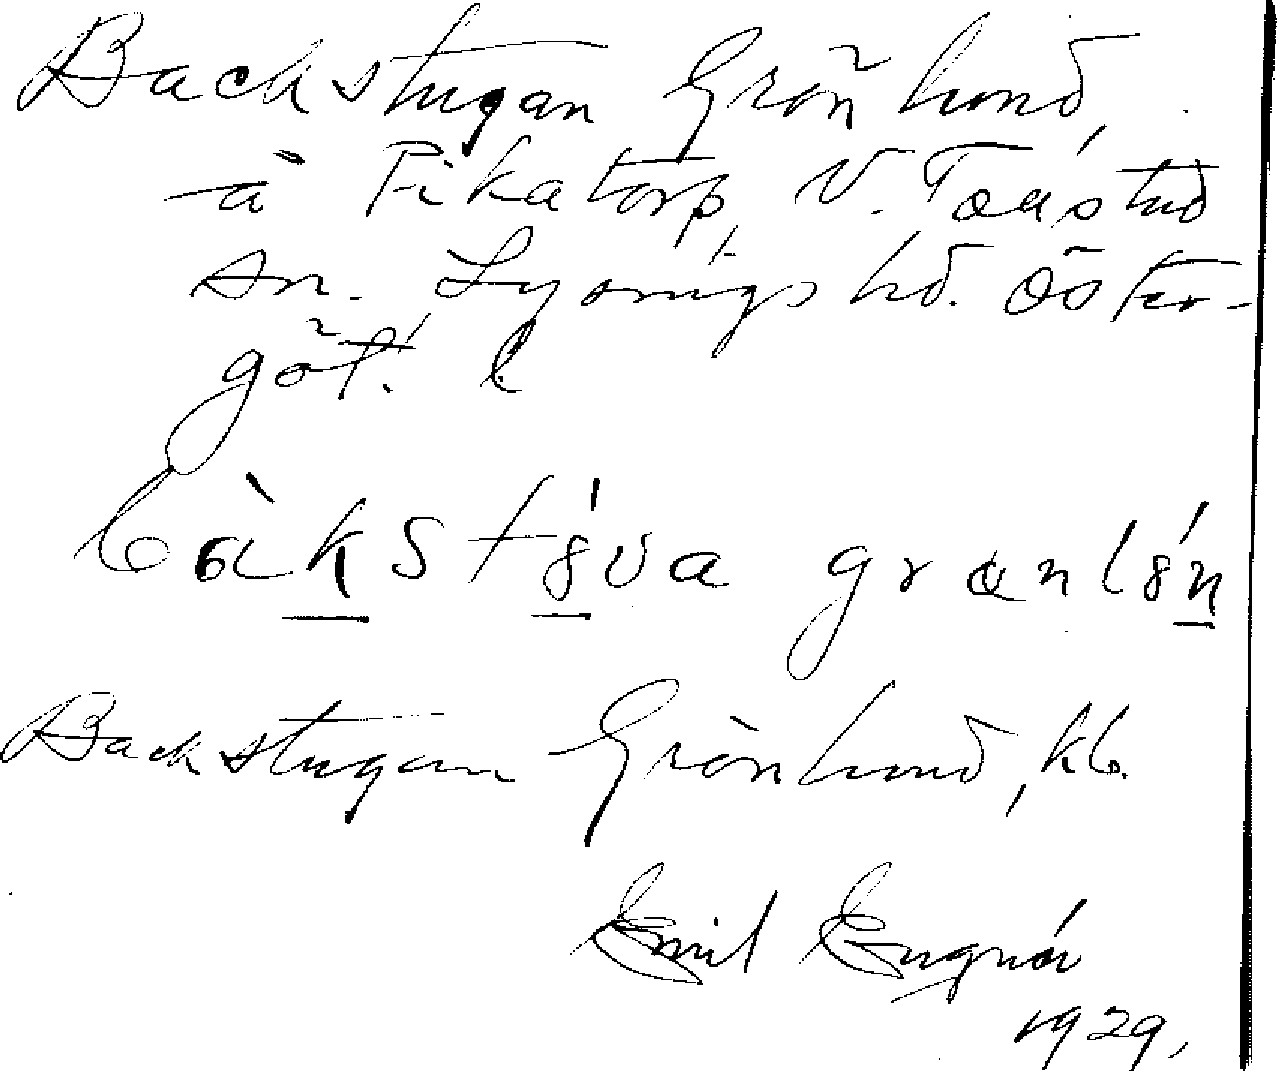 Backstugan Grönlund,
å Pikatorp, V. Tollstad
sn. Lysings hd. Öster-
götl. l
bàkstøva grønløn
Backstugan Grönlund, kb.
Emil
1929.